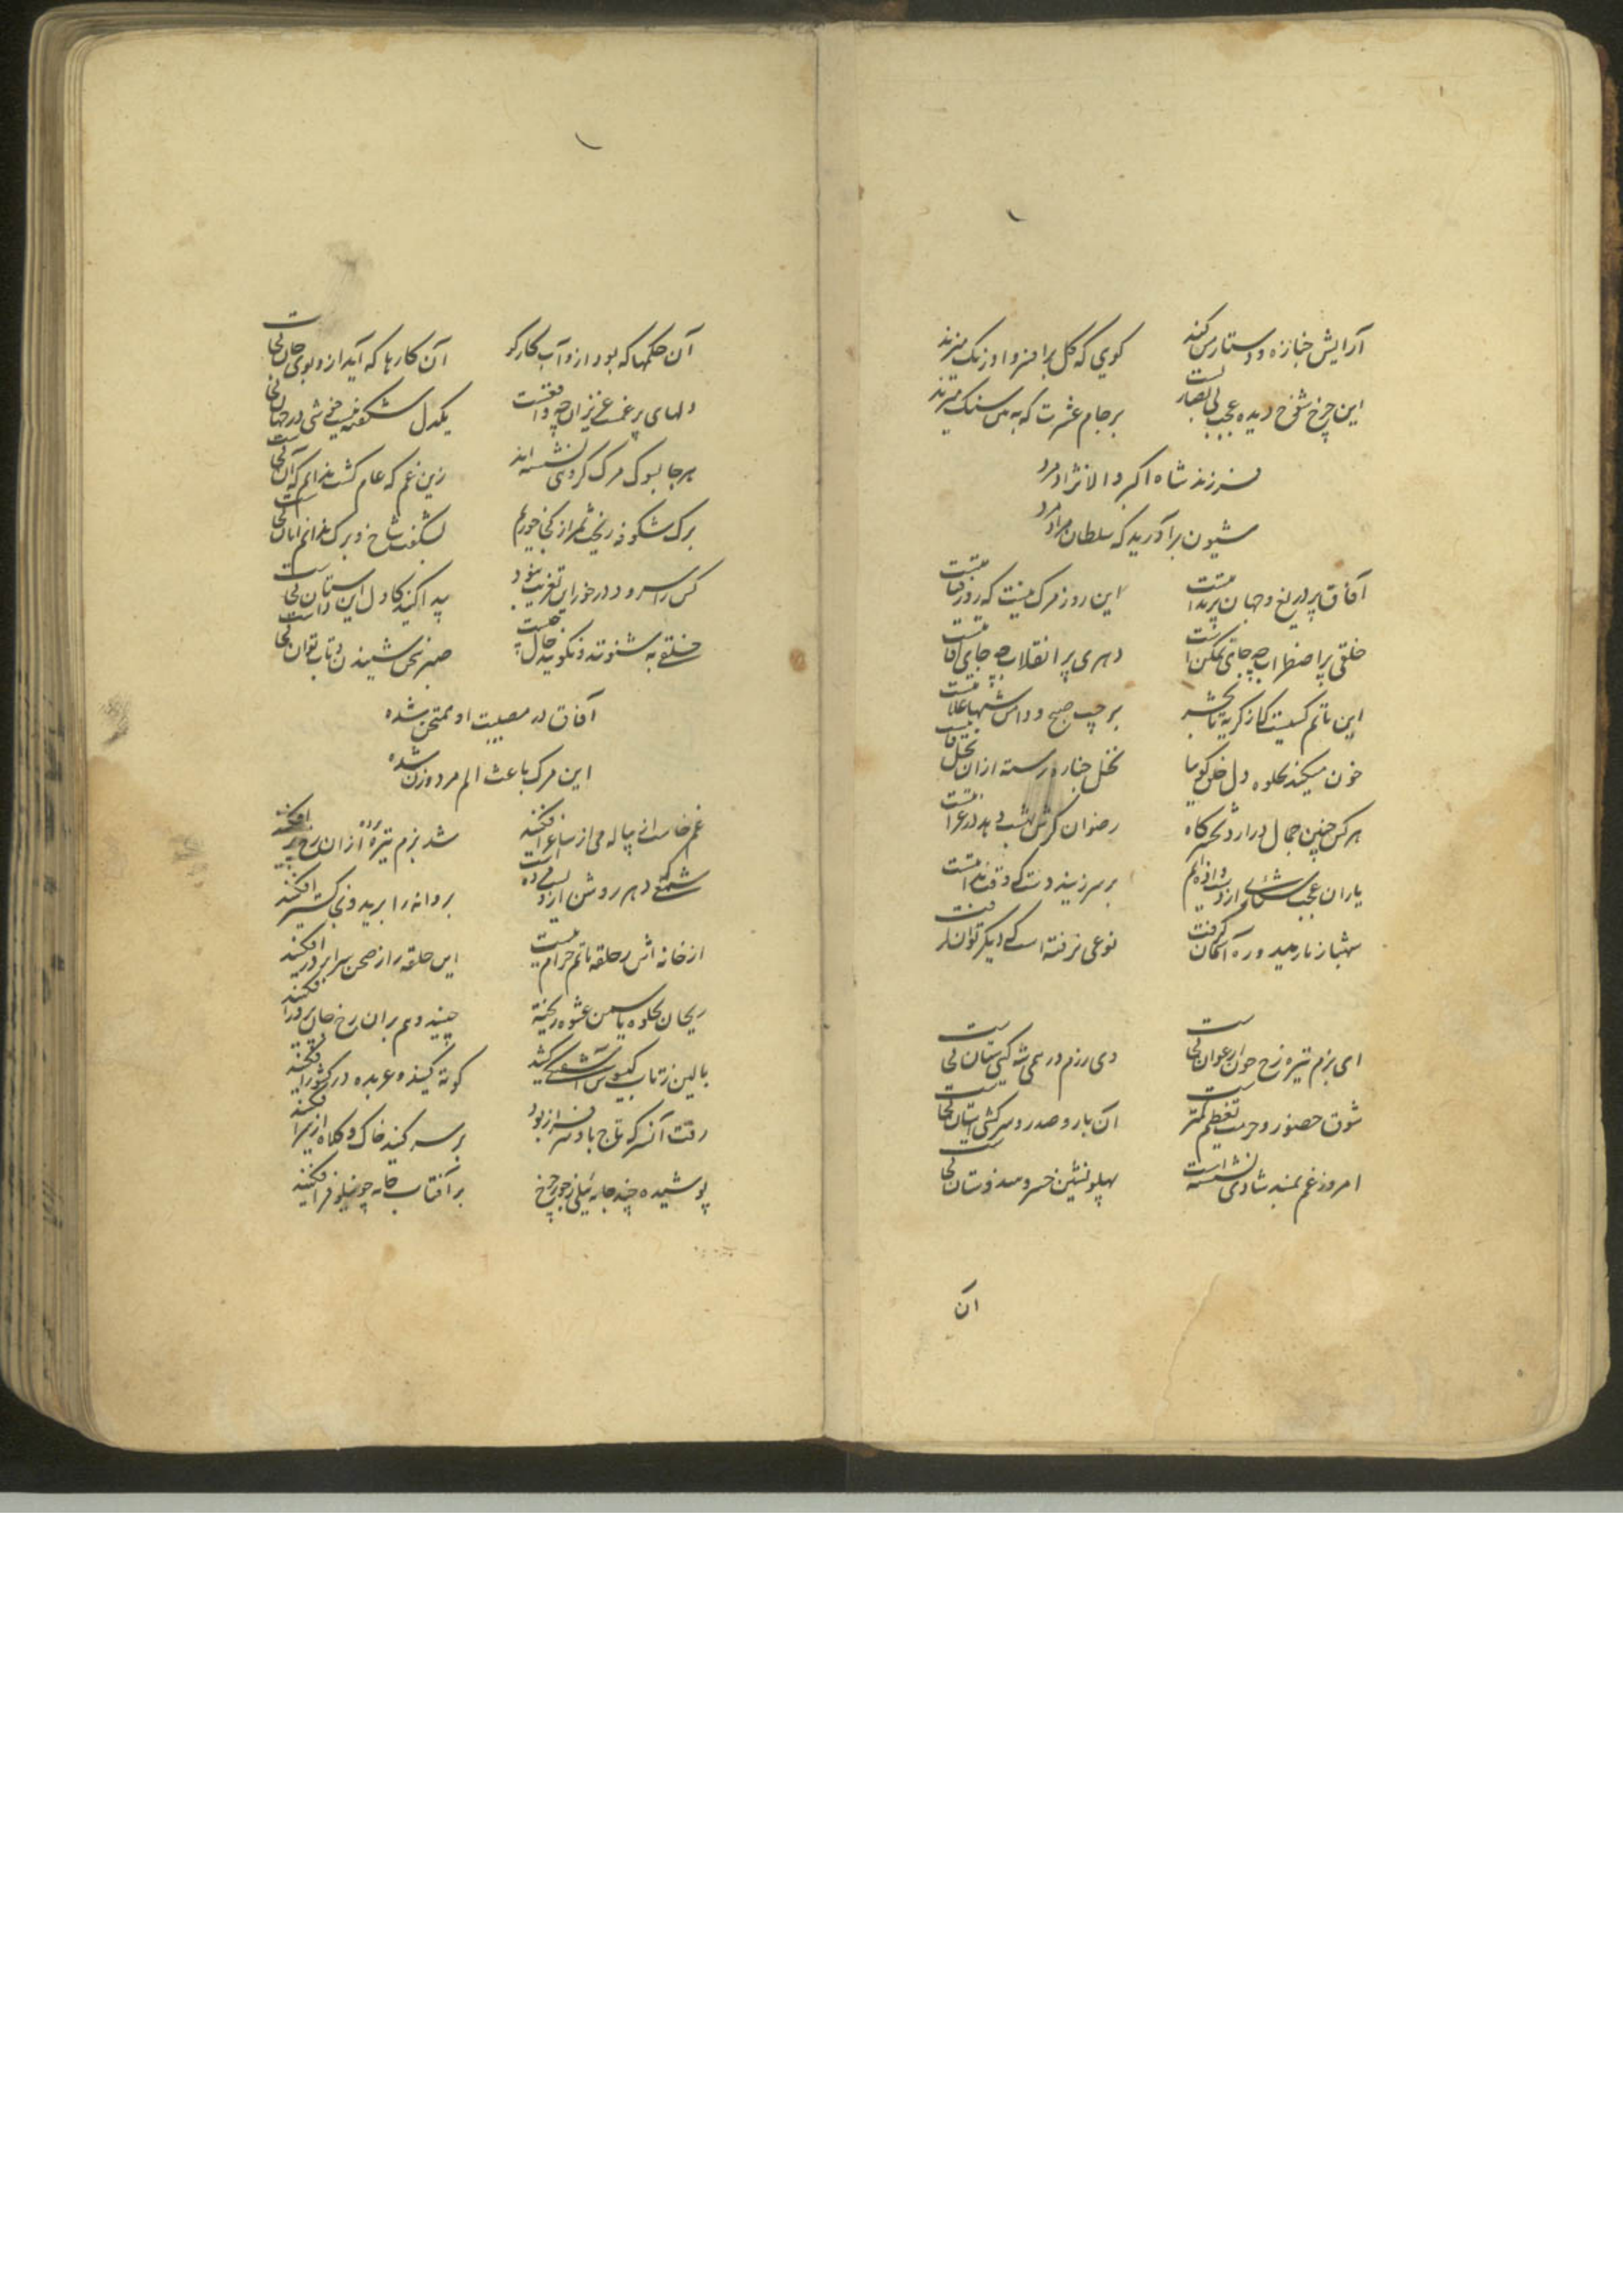 آرایش جنازه و دستار می کند
کوی که کل برافسر و اورنک میزند
این چرخ شوخ دیده عجب بی بصارتست
بر جام عشرت که به بین سنک میزند
فرزند شاه اکبر والا نژاد مرد
شیون برآورید که سلطان مراد مرد
آفاق پر دریغ و جهان پر ندامتست
این روز مرک نیست که روز قیامتست
خلقی پر اضطراب چه جای تمکن است
دهری پر انقلاب چه جای اقامتست
این ماتم کیست که از کریه تا بحشر
بر جیب صبح و دامن شبها علامتست
خون میکند بجلوه دل خلق کوییا
نخل جنازه رسته از آن نخل قامتست
هر کس چنین جمال در آرد بحشرکاه
رضوان کرش بهشت دهد در غرامتست
یاران عجب ز دست او داده ایم
بر سر زنید دست که وقت ندامتست
شهباز نارمید و ره آسمان کرفت
نوعی نرفته است که دیکر توان کرفت
ای بزم تیره رخ چون ارغوان کجاست
وی رزم در همی شه کیتی ستان کجاست
شوق حضور و حرمت تعظیم کمتر
آن بار و صدر و سرکشی آستان کجاست
امروز غم بمسند شادی نشسته است
پهلو نشین خسرو هندوستان کجاست
آن
آن حکمها که بود ازو آب کار کو
آن کارها که آید ازو بوی جان کجاست
دلهای پر غمست عزیزان چه واقعست
یکدل شکفته نیست خوشی در جهان کجاست
هر جا بسوک مرک کروهی نشسته اند
زین غم که عام کشت ندانم کران کجاست
برک شکوفه ریخت ثمر از کجا خوریم
بشکفت شاخ و برک ندانم امان کجاست
کس را سرود درخور این تعزیت نبود
پیدا کنید کاول این داستان کجاست
خلقی به شنوند و نکویند حال چیست
صبر سخن شنیدن و تاب توان کجاست
آفاق در مصیبت او ممتحن شده
این مرک باعث الم مرد و زن شده
غم خاست از پیاله می از ساغر افکنید
شد بزم تیره پرده از آن رخ بر افکنید
شمعی که دهر روشن ازو بود
پروانه را برید و بخاکستر افکنید
از خانه اش حلقه ماتم حرام نیست
این حلقه را ز صحن سرا بر در افکنید
ریحان بجلوه یاسمن عشوه ریخته
چینید و هم بران رخ جان پرور افکنید
بالین ز تاب کیسویش آشفتگی کشد
کوته کنید و عربده در کشور افکنید
رفت آنسر که تاج بدو سرفراز بود
بر سر کنید خاک و کلاه از سر افکنید
پوشیده چند جامه نیلی ز جور چرخ
بر آفتاب جامه چو نیلوفر افکنید